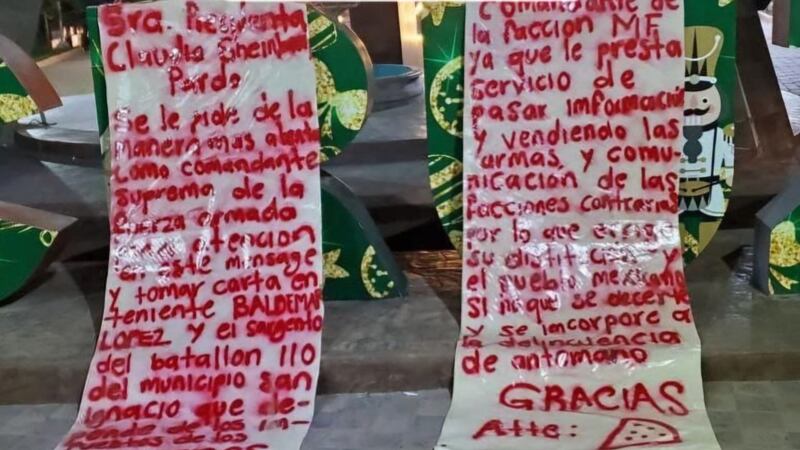 Sra. Presidenta
Claudia Sheinbaum
Pardo
Se le pide de la
manera mas atenta
como comandante
suprema de la
fuerza armada
atencion
en este mensage
y tomar carta en
teniente BALDEMAR
LOPEZ y el sargento
del batallon 110
del municipio san
ignacio que
de los
de los
comandante de
la faccion MF
ya que le presta
servicio de
pasar información
y vendiendo las
armas y comu-
nicacion de las
facciones contrarias
por lo que
su distitucion y
el pueblo mexicano
si no que se decerte
y se incorpore a
la delincuencia
de antomano
GRACIAS
Atte: